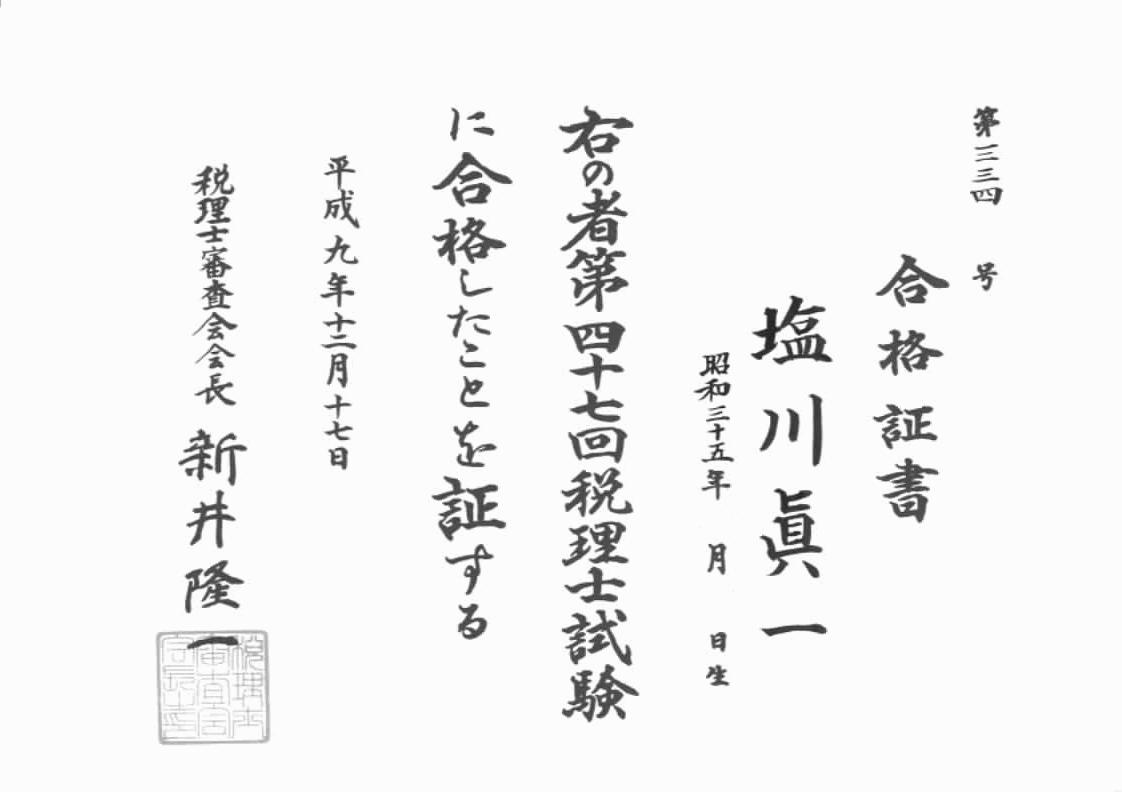 第三三四　号
合格証書
塩川眞一
昭和三十五年　月　日生
右の者第四十七回税理士試験
に合格したことを証する
平成九年十二月十七日
税理士審査会会長　新井隆一
税理士
審査会
会長印